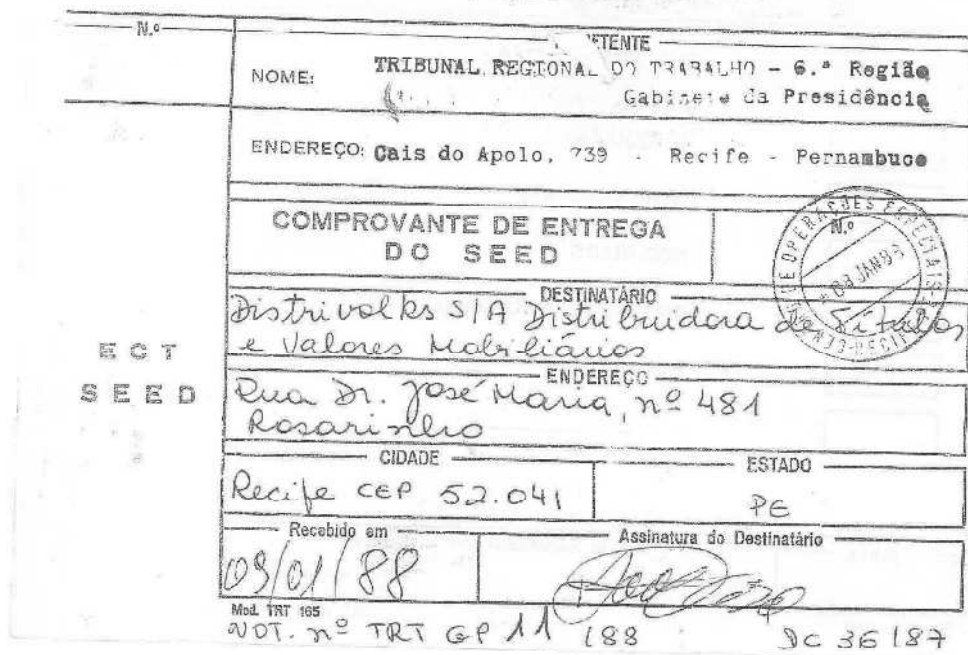 N.º
NOME: TRIBUNAL REGIONAL DO TRABALHO - 6.ª Região
Gabinete da Presidência
ENDEREÇO: Cais do Apolo, 739 - Recife - Pernambuco
COMPROVANTE DE ENTREGA
DO SEED
N.º
DE OPERAÇÕES ESPECIAIS
JAN
RECIFE
DESTINATÁRIO
Distrivolks S/A Distribuidora de Títulos
e Valores Mobiliários
ECT
SEED
ENDEREÇO
Rua Dr. José Maria, nº 481
Rosarinho
CIDADE
Recife CEP 52.041
ESTADO
PE
Recebido em
/01/88
Assinatura do Destinatário
Mod. TRT 165
NOT. nº TRT GP 11 /88 DC 36/87